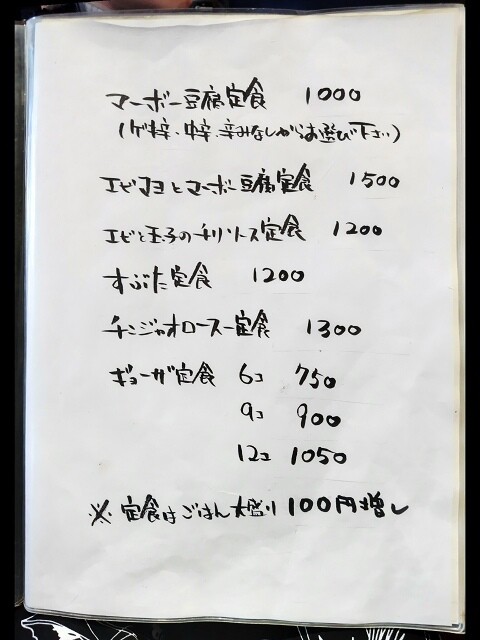 マーボー豆腐定食 1000
(ゲキ辛、中辛、辛みなしからお選び下さい)
エビマヨとマーボー豆腐定食 1500
エビと玉子のチリソース定食 1200
すぶた定食 1200
チンジャオロースー定食 1300
ギョーザ定食 6コ 750
9コ 900
12コ 1050
※ 定食はごはん大盛り 100円増し